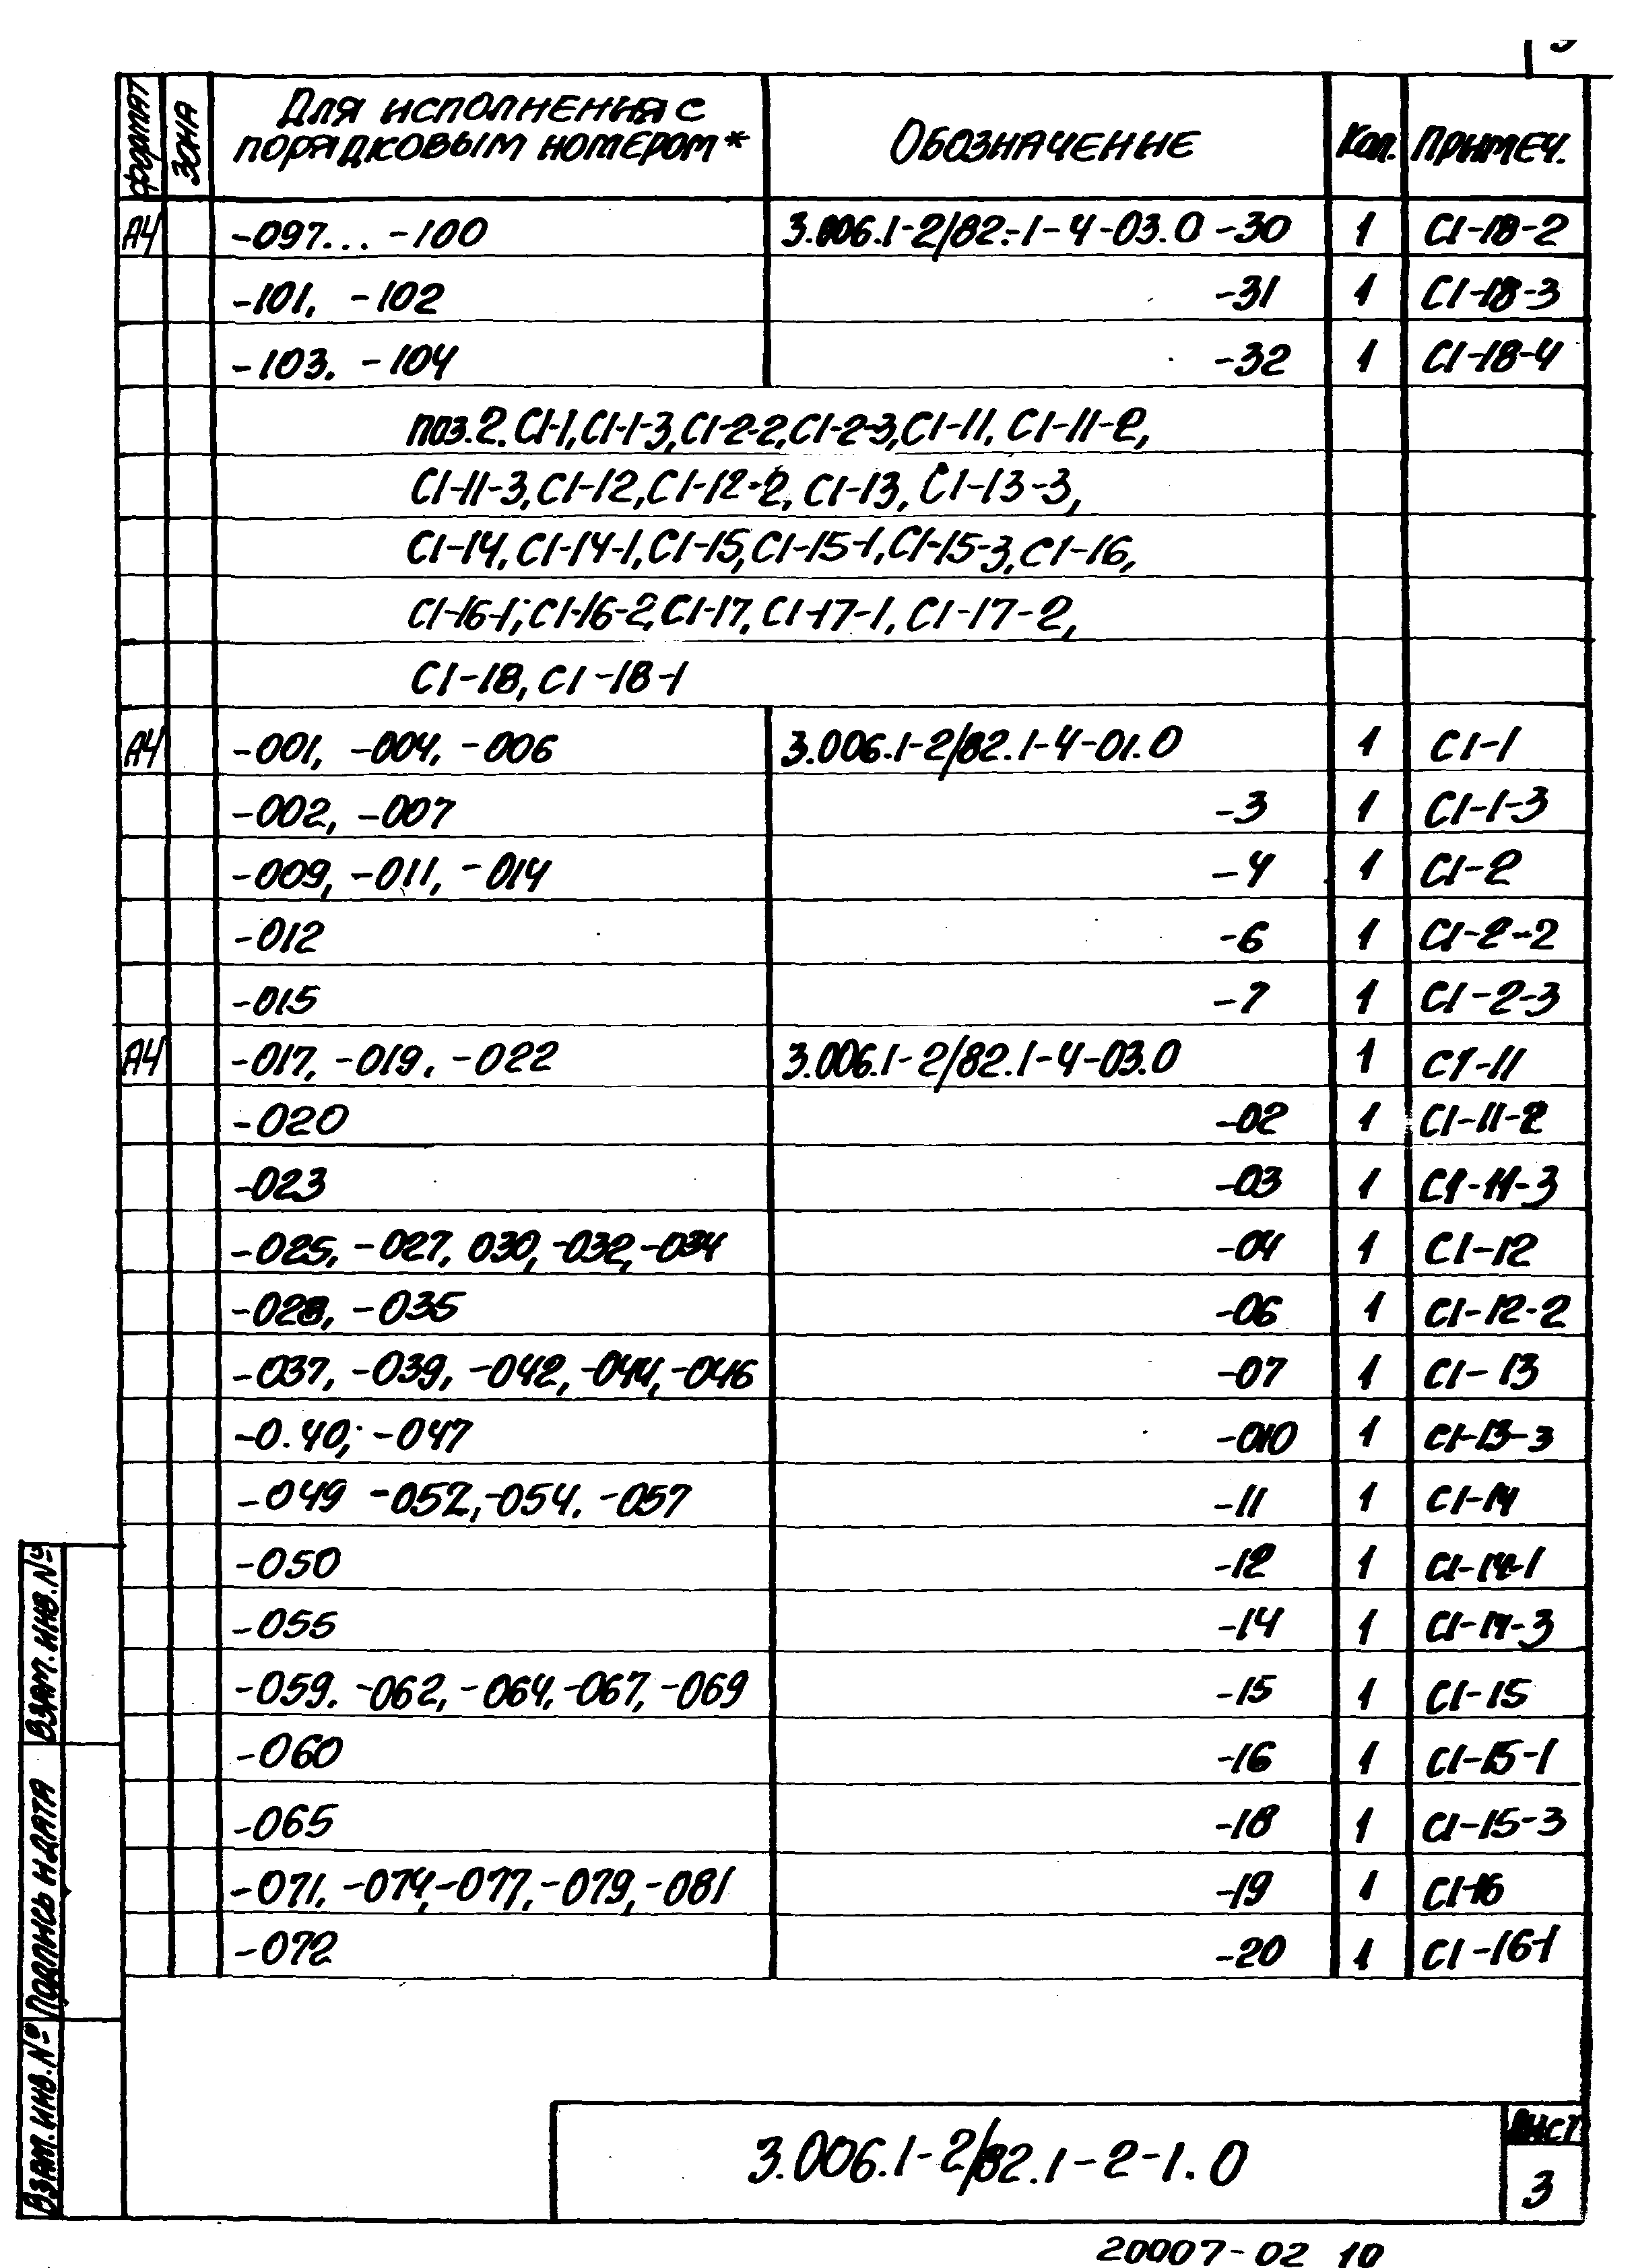 Формат Зона Для исполнения с порядковым номером* Обозначение Кол. Примеч.
А4 -097... -100 3.006.1-2/82.-1-4-03.0 -30 1 С1-18-2
-101, -102 -31 1 С1-18-3
-103. -104 -32 1 С1-18-4
поз.2. С1-1, С1-1-3, С1-2-2, С1-2-3, С1-11, С1-11-2,
С1-11-3, С1-12, С1-12-2, С1-13, С1-13-3,
С1-14, С1-14-1, С1-15, С1-15-1, С1-15-3, С1-16,
С1-16-1, С1-16-2, С1-17, С1-17-1, С1-17-2,
С1-18, С1-18-1
А4 -001, -004, -006 3.006.1-2/82.1-4-01.0 1 С1-1
-002, -007 -3 1 С1-1-3
-009, -011, -014 -4 1 С1-2
-012 -6 1 С1-2-2
-015 -7 1 С1-2-3
А4 -017, -019, -022 3.006.1-2/82.1-4-03.0 1 С1-11
-020 -02 1 С1-11-2
-023 -03 1 С1-11-3
-025, -027, 030, -032, -034 -04 1 С1-12
-028, -035 -06 1 С1-12-2
-037, -039, -042, -044, -046 -07 1 С1-13
-0.40, -047 -010 1 С1-13-3
-049 -052, -054. -057 -11 1 С1-14
-050 -12 1 С1-14-1
-055 -14 1 С1-14-3
-059. -062, -064, -067, -069 -15 1 С1-15
-060 -16 1 С1-15-1
-065 -18 1 С1-15-3
-071, -074, -077, -079, -081 -19 1 С1-16
-072 -20 1 С1-16-1
Взам. инв. №
Подпись и дата
Взам. инв. №
3.006.1-2/82.1-2-1.0
Лист
3
20007-02 10